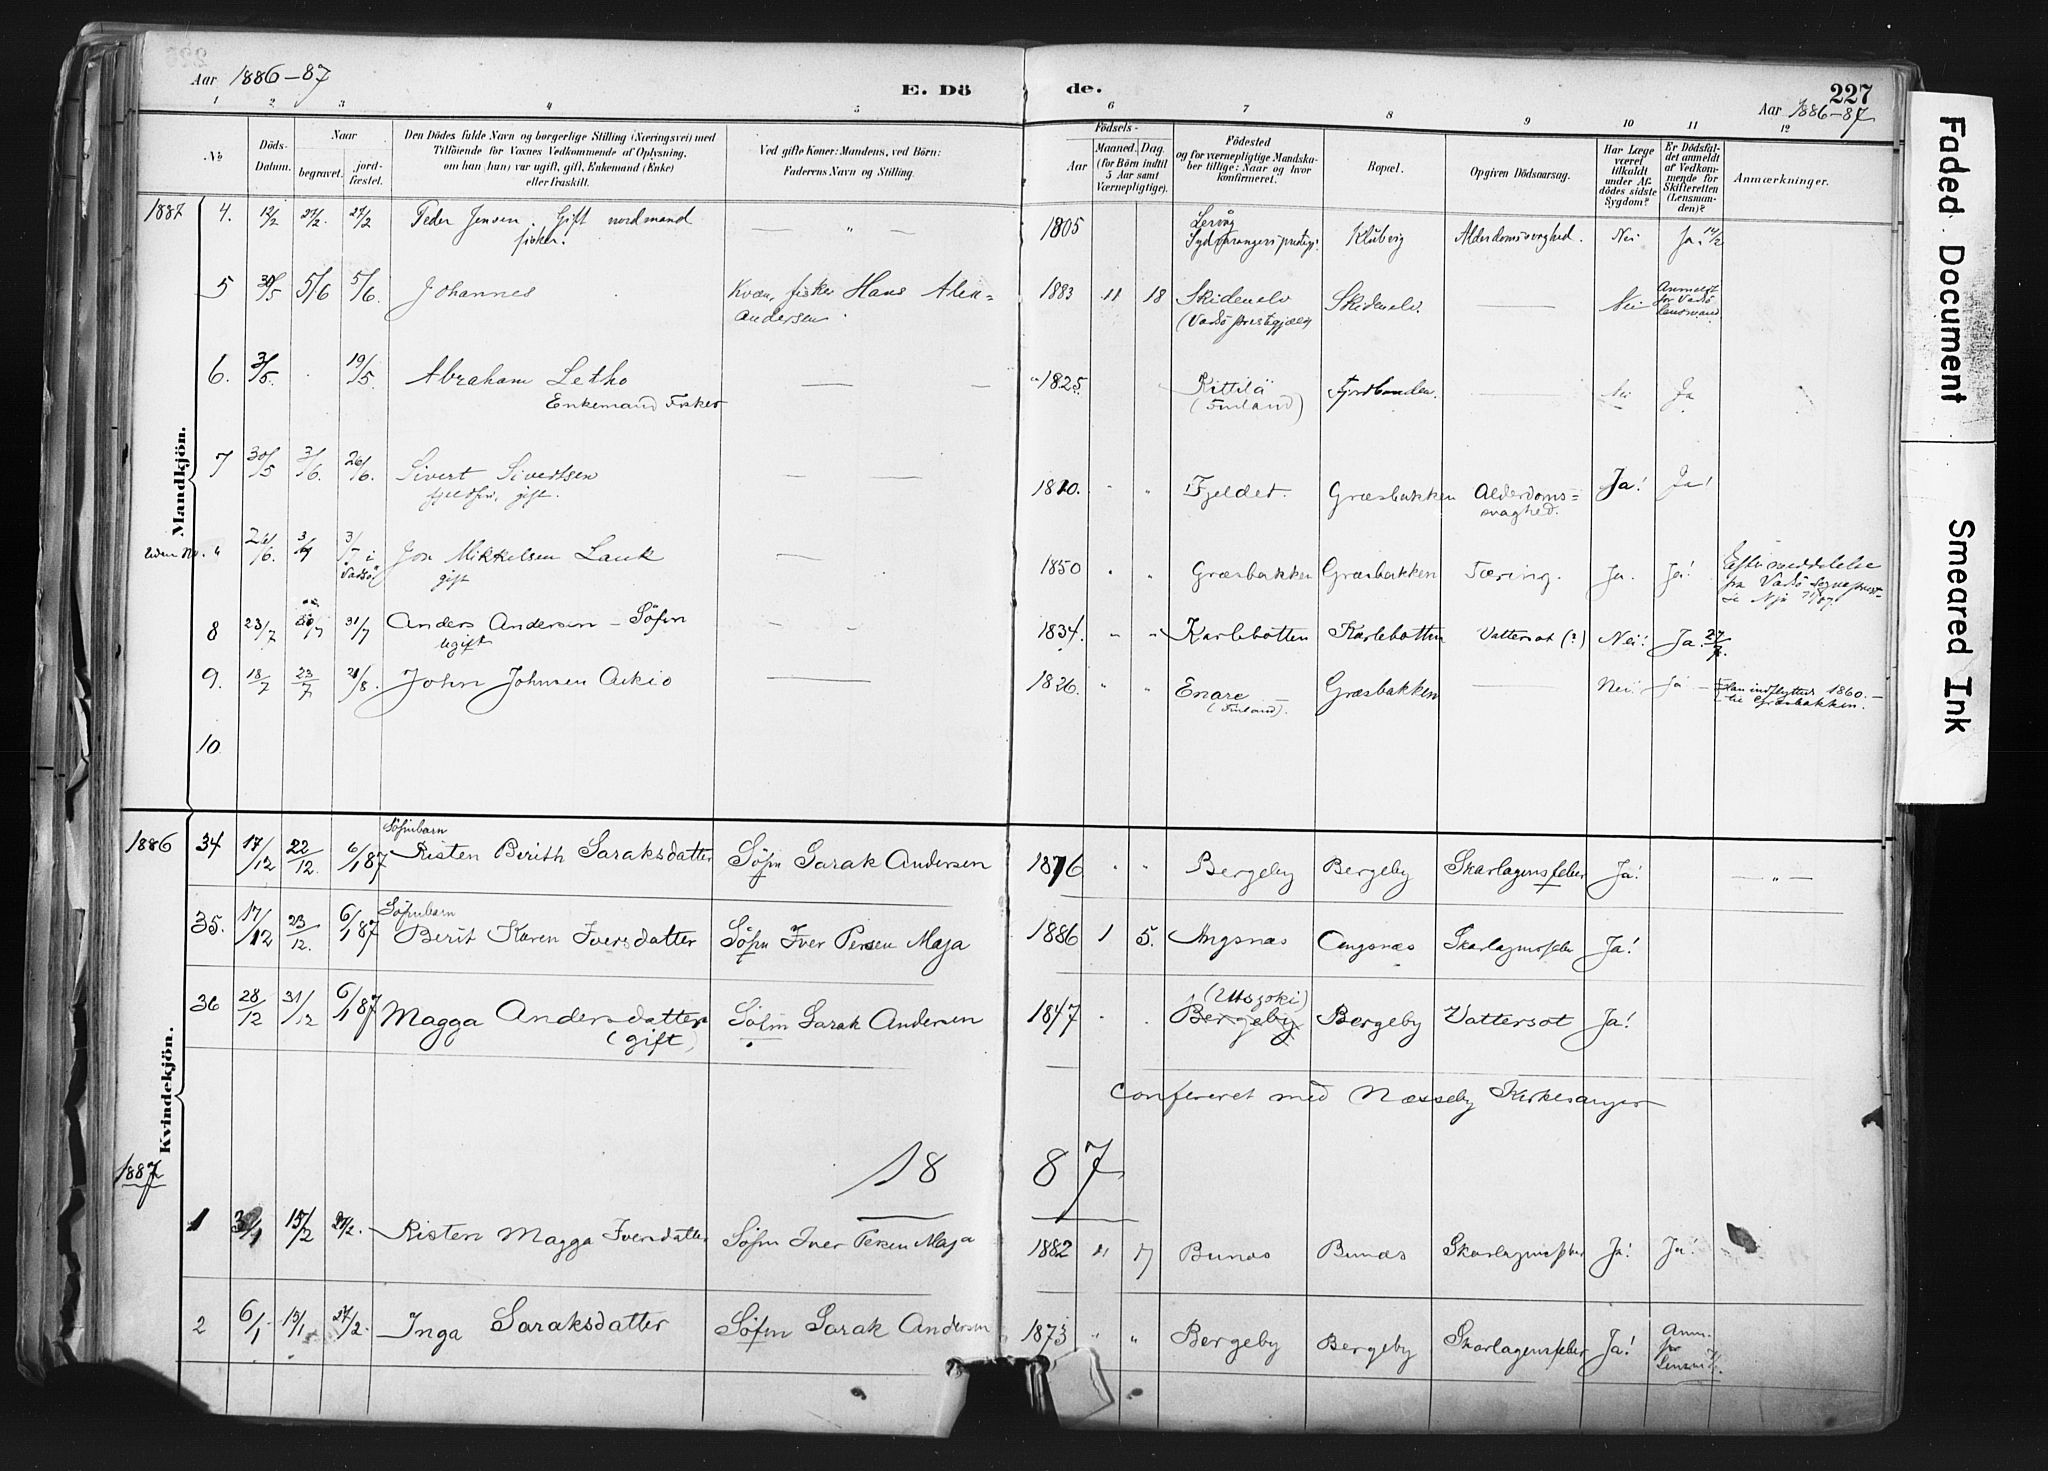 Aar 1886-87
E. Dö
de.
227
Aar 1886-87
1 2 3 4 5 6 7 8 9 10 11 12
No
Döds-Datum.
Naar
begravet.
jord-fæstet.
Den Dödes fulde Navn og borgerlige Stilling (Næringsvei) med
Tilföiende for Voxnes Vedkommende af Oplysning,
om han (hun) var ugift, gift, Enkemand (Enke)
eller fraskilt.
Ved gifte Koner: Mandens, ved Börn:
Faderens Navn og Stilling.
Födsels-
Aar
Maaned. Dag.
(for Börn indtil
5 Aar samt
Værnepligtige).
Födested
og for værnepligtige Mandska-
ber tillige: Naar og hvor
konfirmeret.
Bopæl.
Opgiven Dödsaarsag.
Har Læge
været
tilkaldt
under Af-
dödes sidste
Sygdom?
Er Dödsfal-
det anmeldt
af Vedkom-
mende for
Skifteretten
(Lensman-
den)?
Anmærkninger.
Mandkjön.
1887 4. 12/2 27/2. 27/2 Peder Jensen. Gift nordmand
fisker.
— " — 1805 Klubvig Alderdomssvaghed. Nei Ja. 14/2
5 30/5 5/6 5/6. Johannes Kvæn, fisker Hans Alex-
Andersen. 1883 11 18 Skidenelv
(Vadsö præstegjæld) Skidenelv. — Nei Anmeldt
for Vadsö
lensmand
6. 3/5. 19/5. Abraham Letho
Enkemand Fisker
— 1825. Kittilä
(Finland) Fjordbunden. — Nei Ja
7 30/5 3/6. 26/6. Sivert Sivertsen
fjeldfin, gift.
— — 1810. " " Fjeldet. Græsbakken Alderdoms=
svaghed. Ja! Ja!
Uden No. " 26/6. 3/7 3/7 i
Vadsö Jon Mikkelsen Lauk
gift
— 1850 " " Græsbakken Græsbakken Tæring. Ja. Ja! Efter meddelelse
fra Vadsö sognepræst
8 23/7 31/7 Anders Andersen - Söfin
ugift
— 1834. " " Karlebotten Karlebotten Vattersot (?) Nei! Ja. 27/7.
9. 18/7 23/7 21/8. John Johnsen Aikio — 1826. " " Enare —
(Finland). Græsbakken — Nei! Ja — Han indflytted 1860. —
til Græsbakken.
10.
Kvindekjön.
1886 34 17/12 22/12. 6/1 87 Söfinbarn
Risten Berith Saraksdatter Söfin Sarak Andersen 1876 " " Bergeby Bergeby Skarlagensfeber Ja! — " —
35. 17/12 23/12. 6/1 87 Söfinbarn
Berit Karen Iversdatter Söfin Iver Persen Maja 1886 1 5. Angsnæs Angsnæs Skarlagensfeber Ja!
36 28/12 31/12 6/1 87 Magga Andersdatter
(gift) Söfin Sarak Andersen 1847 " " (Utsjoki)
Bergeby Bergeby Vattersot Ja!
Confereret med Næsseby Kirkesanger
1887
18 87
1 3/1 15/2 27/2. Risten Magga Iversdatter Söfin Iver Persen Maja 1882 11 17 Bunæs Bunæs Skarlagensfeber Ja! Ja!
2 6/1 13/1 27/2. Inga Saraksdatter Söfin Sarak Andersen 1873 " " Bergeby Bergeby Skarlagensfeber Ja! Anm.
for
Lensm.
Faded Document
Smeared Ink